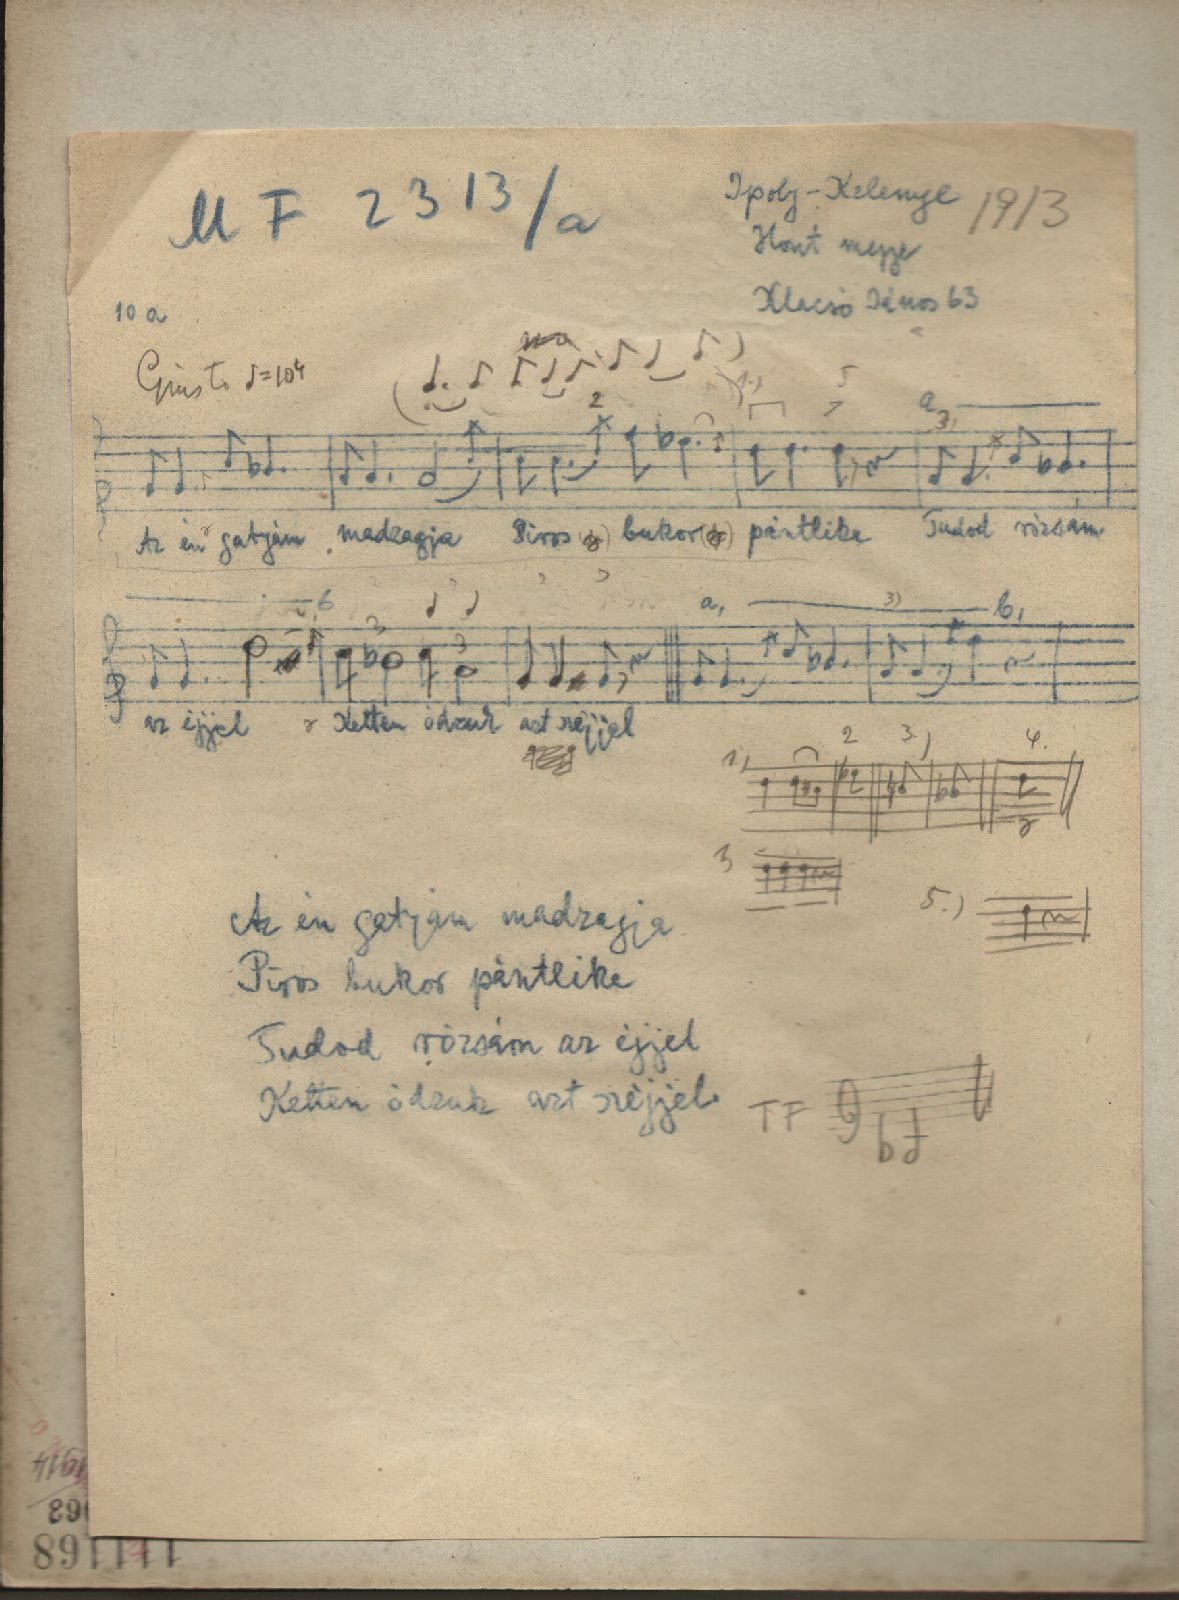 M F 2313/a
Ipoly-Kelenye 1913
Hont megye
Klacsó János 63
10 a
Giusto ♩=104
2 1.) 5 a 3)
Az én gatyám madzagja Piros bukor pántlika Tudod rózsám
6 3 3 a, 3) b,
az éjjel Ketten ódzuk azt széjjel
1) 2 3.) 4.
3 5.)
Az én gatyám madzagja
Piros bukor pántlika
Tudod rózsám az éjjel
Ketten ódzuk azt széjjel.
TF